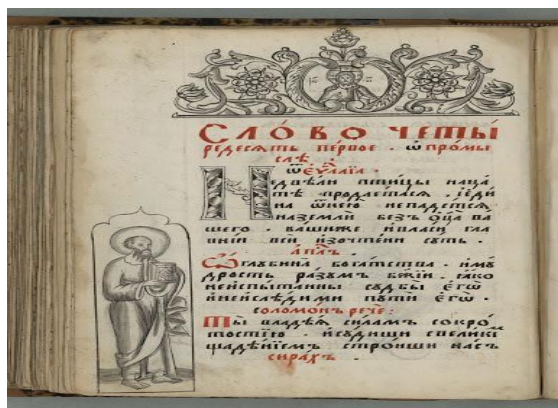 СЛО́ВО ЧЕТЫ́
редесѧть пе́рвое . ѡ҆ промы
слѣ .
ѿ є҆ѵⷢ҇лїа .
Недвѣли птицы наца
тѣ продаетасѧ . і҆ є҆ди
на ѿнею̀ непадетсѧ
наземлѝ безъ ѻ҆ц҃а ва
шего . вашиже и҆власи гла
внїи вси и҆зочтени суть .
а҆пⷭ҇лъ .
Ѽ глубина̀ богатства . и҆му
дрость ра́зумъ бж҃їи . ꙗ҆ко
неиспытанны судбы є҆гѡ̀
и҆неислѣ́дими путїи є҆гѡ̀ .
соломонъ рече :
Ты̀ владѣѧ силамъ сокро
тостїю . и҆судиши
щадѣ́нїемъ стро́иши насъ
сирахъ .